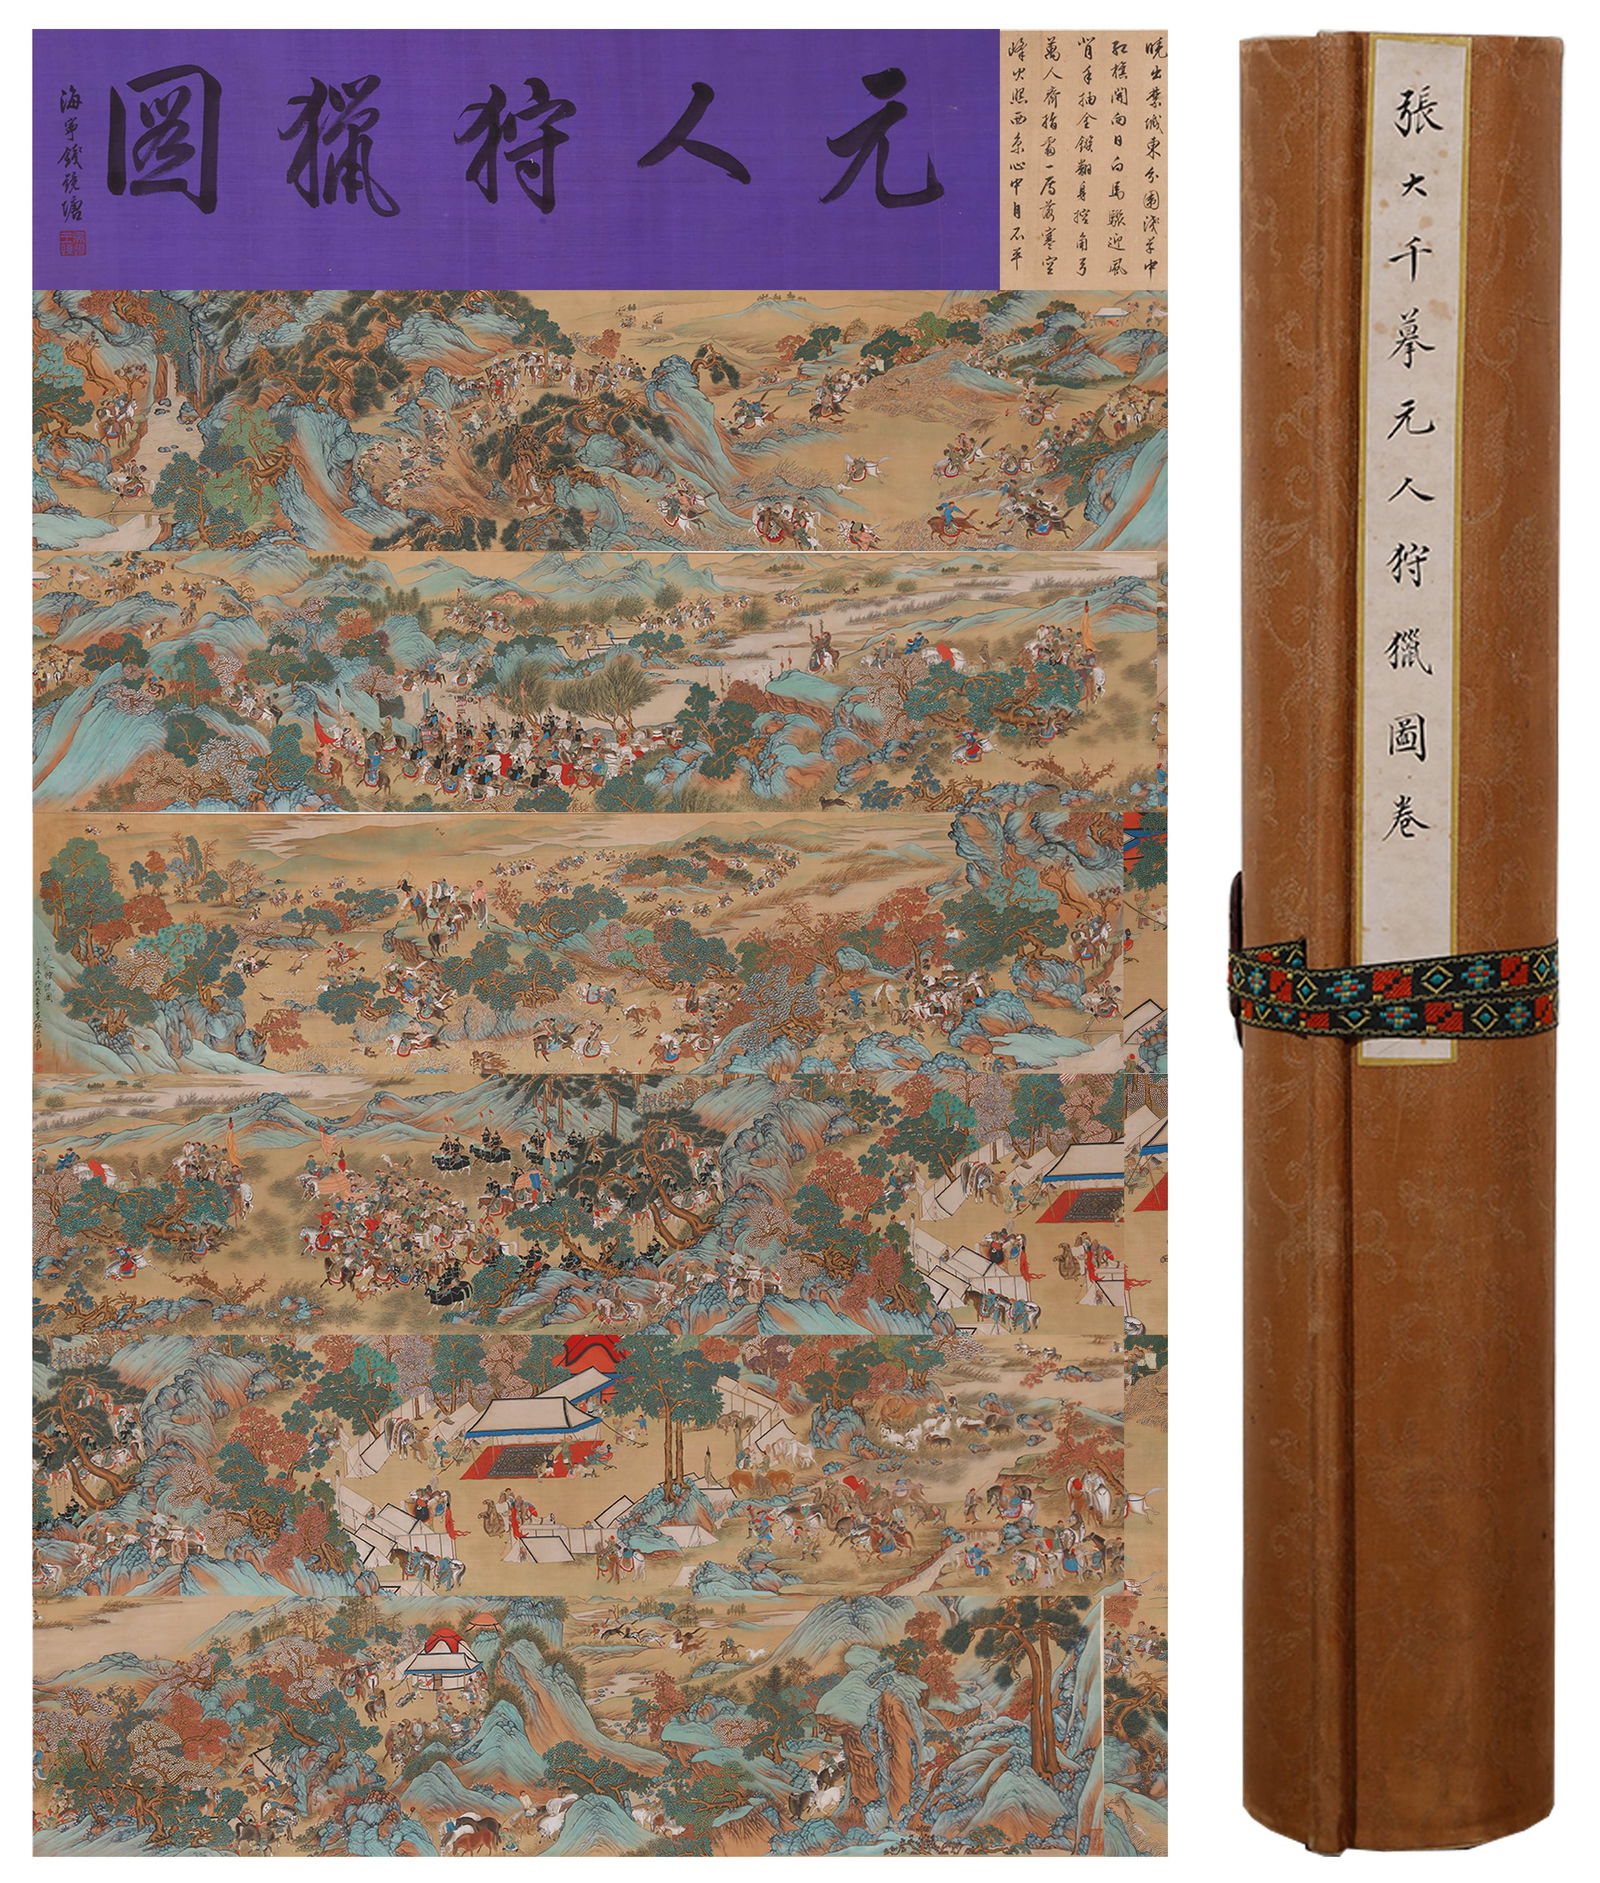 元人狩獵圖
海寧錢鏡塘
曉出禁城東分圍淺草中
紅旗開向日白馬驟迎風
背手抽金鏃翻身控角弓
萬人齊指處一雁落寒空
烽火照西京心中自不平
張大千摹元人狩獵圖卷